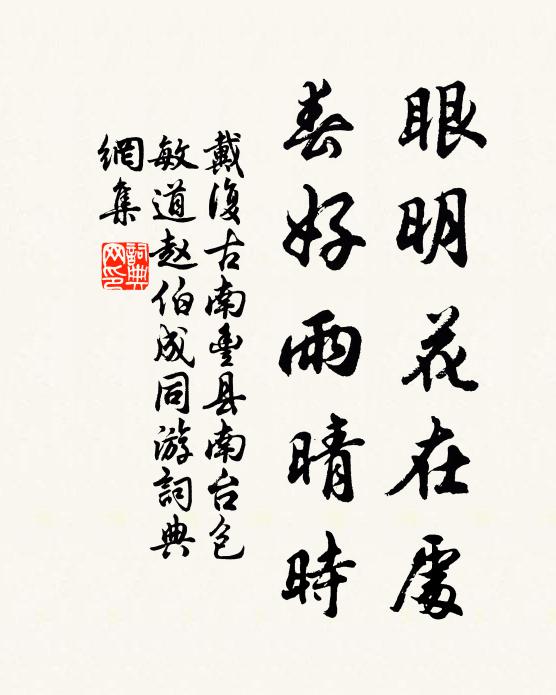 眼明花在處
春好雨晴時
戴復古南豐县南台包
敏道赵伯成同游詞典
網集
詞典
网印